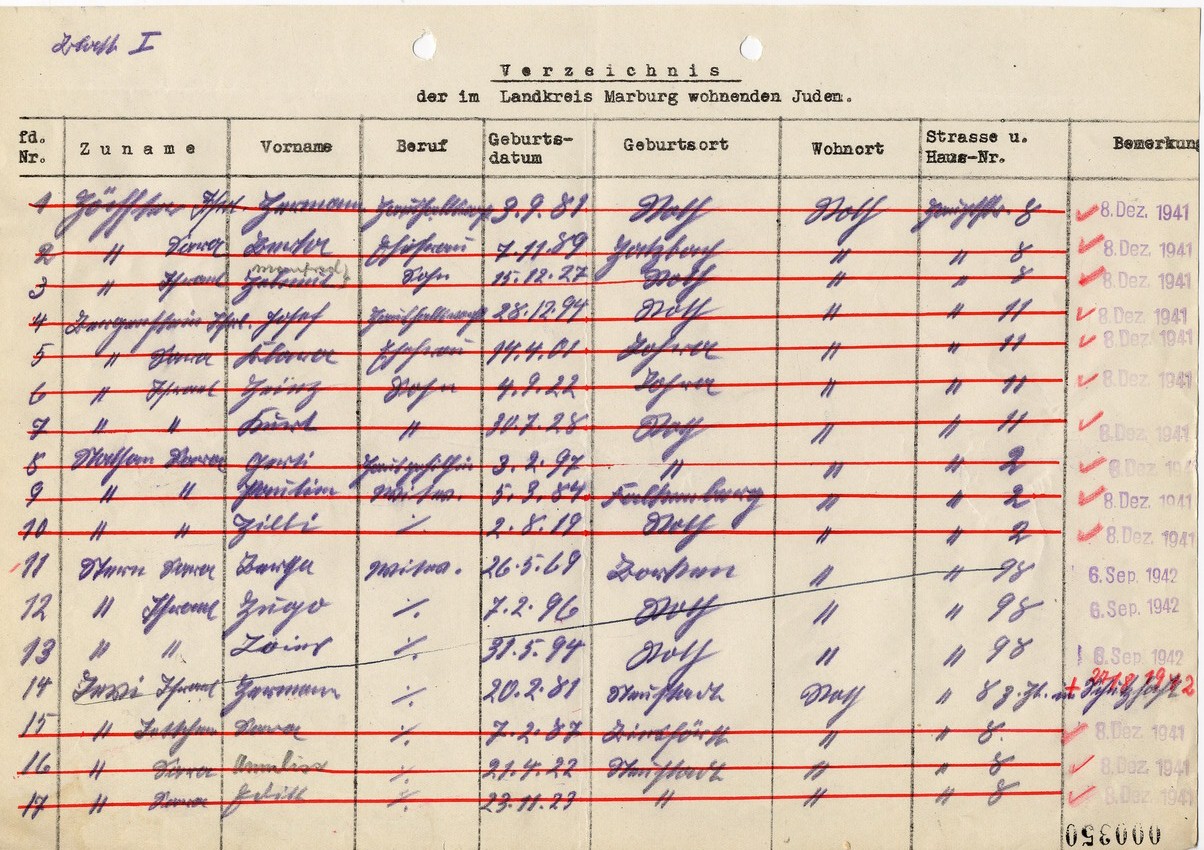 Blatt I
Verzeichnis
der im Landkreis Marburg wohnenden Juden.
fd. Nr. Zuname Vorname Beruf Geburts-datum Geburtsort Wohnort Strasse u. Haus-Nr. Bemerkung
1 Höchster Isrl. Hermann 3.9.81 Roth Roth 8 8. Dez. 1941
2 " Sara Berta Ehefrau 7.11.89 Hatzbach " " 8 8. Dez. 1941
3 " Israel Helmut Sohn 15.12.27 Roth " " 8 8. Dez. 1941
4 Bergenstein Isrl. Josef 28.12.94 Roth " " 11 8. Dez. 1941
5 " Sara Klara Ehefrau 14.4.01 Lohra " " 11 8. Dez. 1941
6 " Israel Heinz Sohn 4.9.22 Lohra " " 11 8. Dez. 1941
7 " " Kurt " 30.7.28 Roth " " 11 8. Dez. 1941
8 Nathan Sara Hausgehilfin 3.2.97 " " " 2 8. Dez. 194
9 " " Witwe. 5.3.84 Falkenberg " " 2 8. Dez. 1941
10 " " Zilli ·/. 2.8.19 Roth " " 2 8. Dez. 1941
11 Stern Sara Berga Witwe. 26.5.69 Borken " " 98 6. Sep. 1942
12 " Israel Hugo ·/. 7.2.96 Roth " " 98 6. Sep. 1942
13 " " Louis ·/. 31.5.94 Roth " " 98 6. Sep. 1942
14 Israel Hermann ·/. 20.2.81 Neustadt Roth " 8 z.Zt. in Schutzhaft
15 " Jettchen Sara ·/. 7.2.87 " " 8. 8. Dez. 1941
16 " Sara Annelise ·/. 21.4.22 Neustadt " " 8 8. Dez. 1941
17 " Sara Edith ·/. 23.11.23 " " " 8 8. Dez. 1941
000350